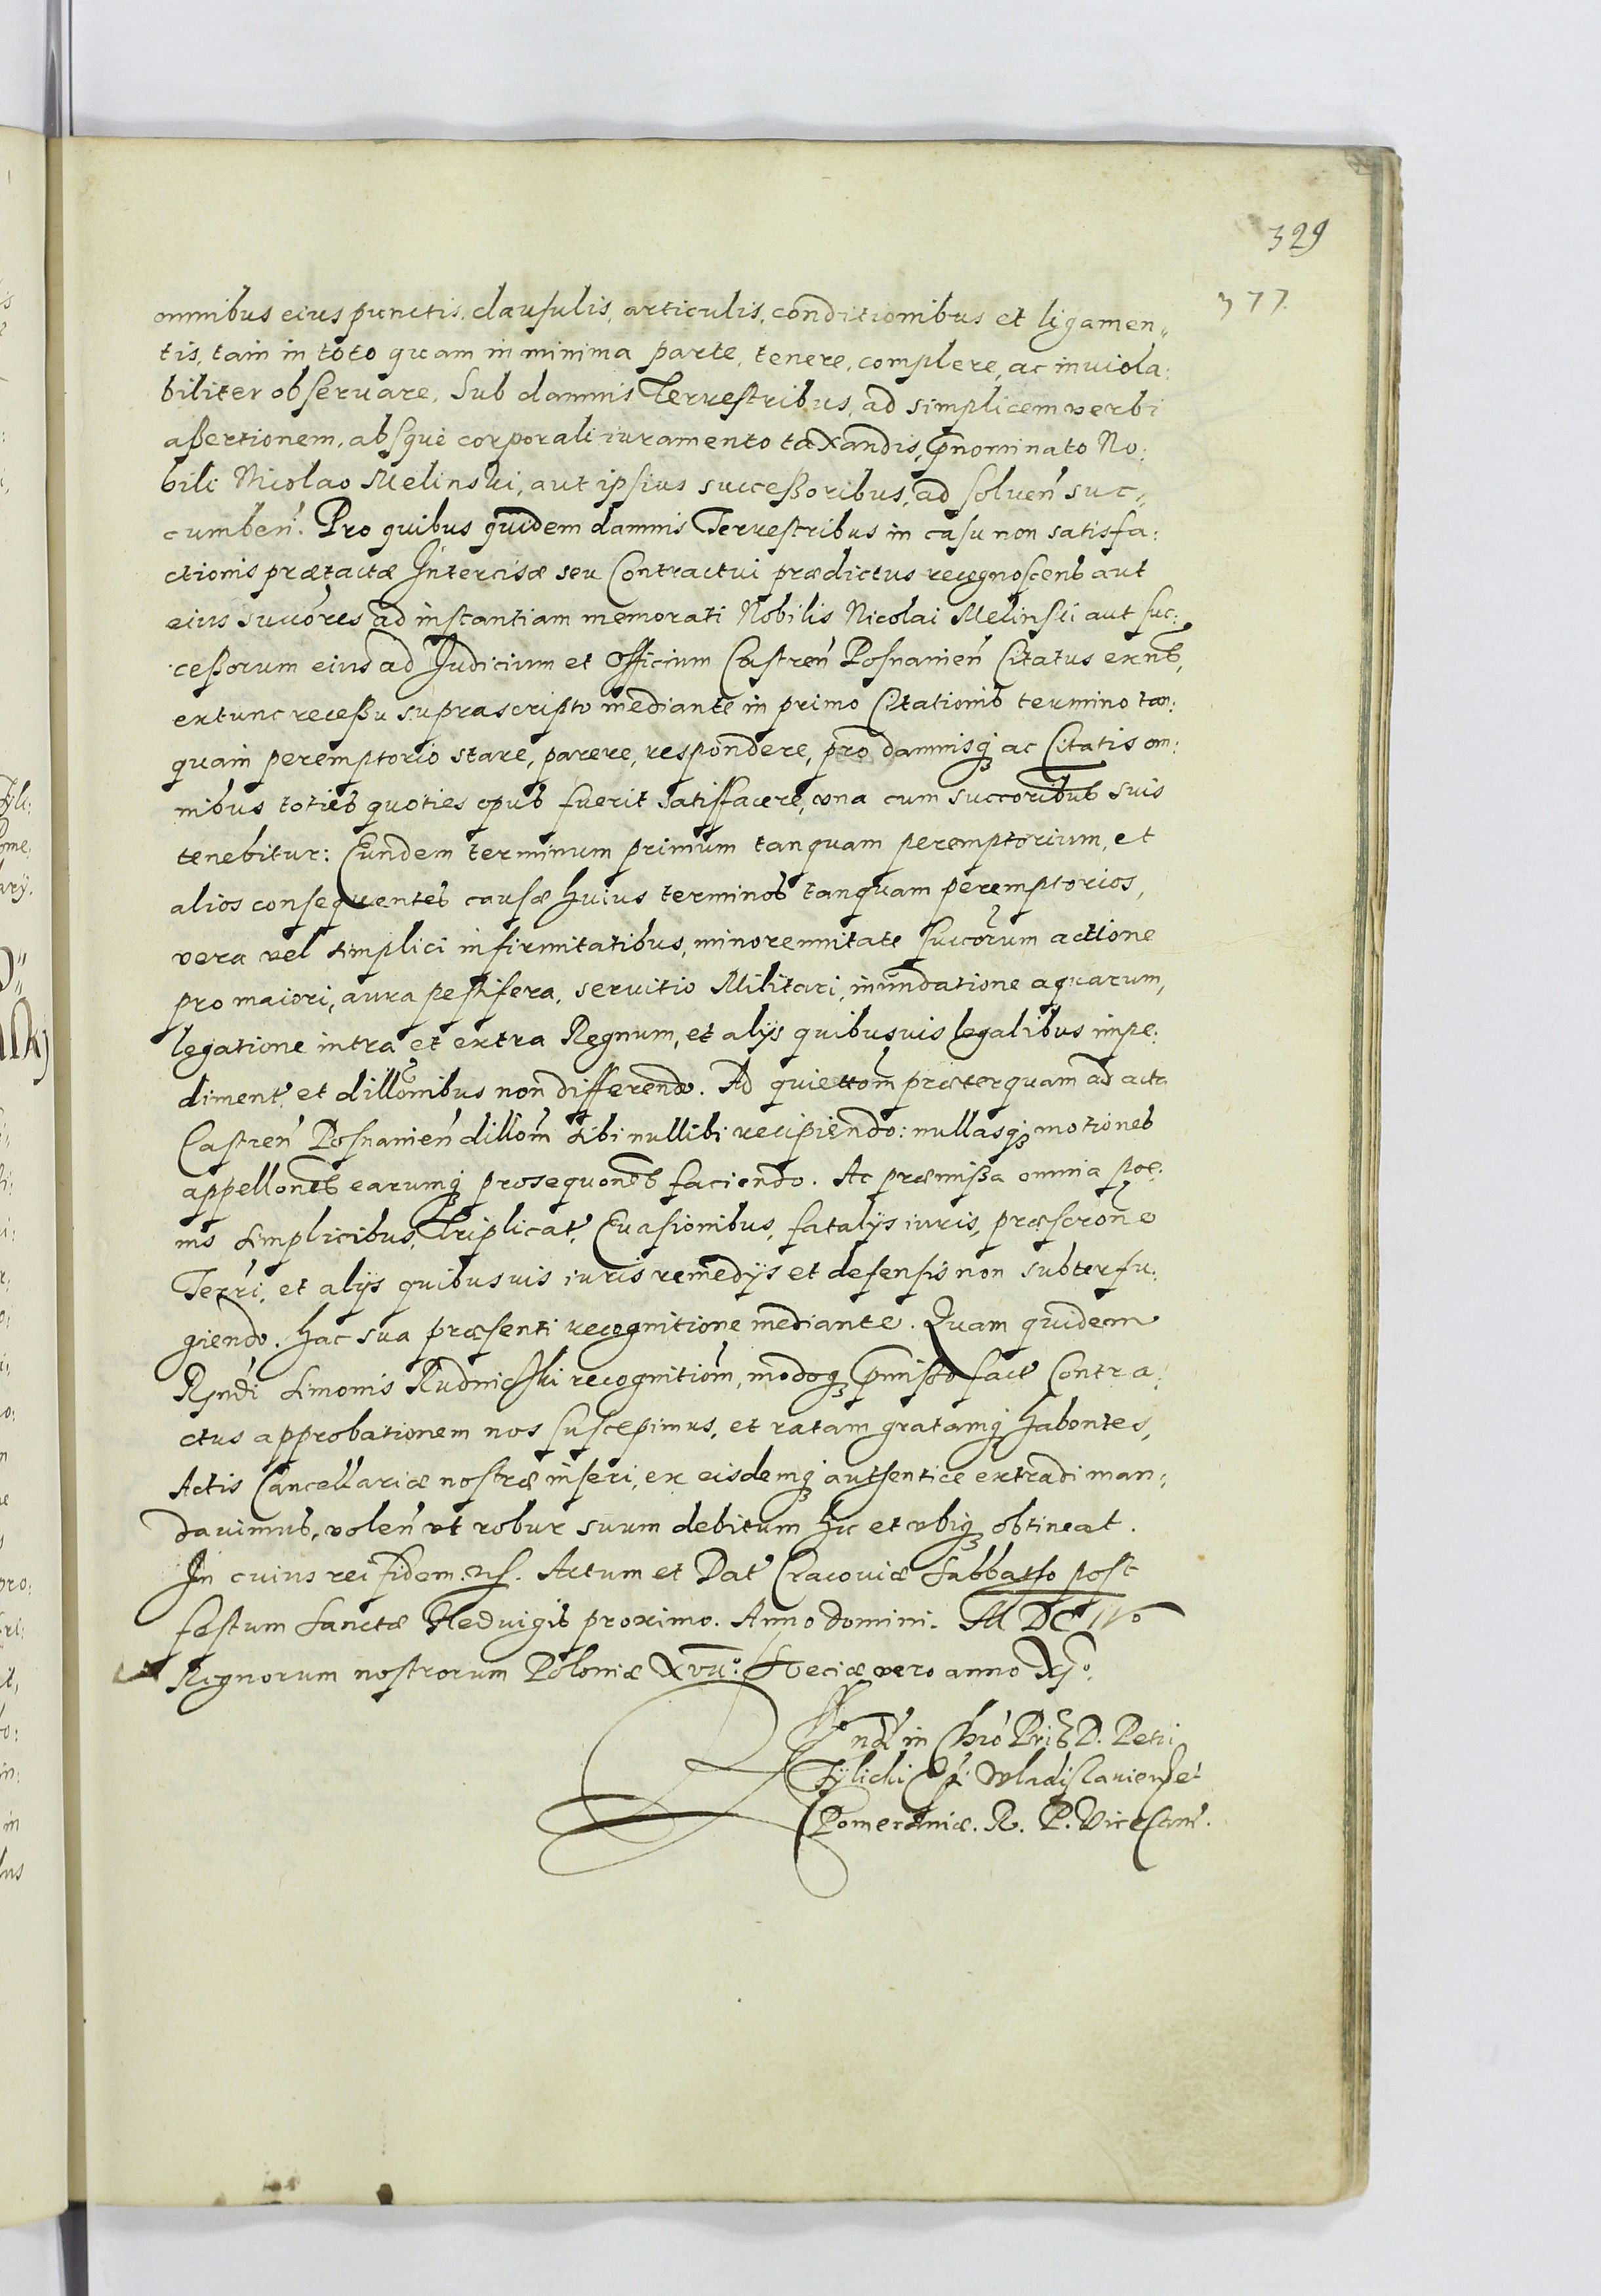 329
377.
omnibus eius punctis, clausulis, articulis, conditionibus et ligamen„
tis, tam in toto quam in minima parte, tenere, complere, ac inuiola:
biliter obseruare, Sub damnis Terrestribus, ad simplicem verbi
aßertionem, absque corporali iuramento taxandis, p̄nominato No:
bili Nicolao Melinski, aut ipsius succeßoribus, ad soluen̄ suc:
cumben̄. Pro quibus quidem damnis Terrestribus in casu non satisfa:
ctionis prætactæ Intercisæ seu Contractui prædictus recognoscens aut
eius succōres ad instantiam memorati Nobilis Nicolai Melinski aut suc:
ceßorum eius ad Judicium et Officium Castren̄ Posnanien̄ Citatus exn̄s,
extunc receßu suprascripto mediante in primo Citationis termino tan:
quam peremptorio stare, parere, respondere, pro damnisq́ ac Citatis om:
nibus toties quoties opus fuerit satisfacere, vna cum succoribus suis
tenebitur: Eundem terminum primum tanquam peremptorium, et
alios consequentes causæ huius terminos tanquam peremptorios,
vera vel simplici infirmitatibus, minorennitate succōrum actione
pro maiori, aura pestifera, seruitio Militari, inundatione aquarum,
legatione intra et extra Regnum, et alijs quibusuis legalibus impe:
diment̄ et dillōnibus non differendo. Ad quiettōm præterquam ad acta
Castren̄ Posnanien̄ dillōm sibi nullibi recipiendo: nullasq́ motiones
appellōnes earumq́ prosequōnes faciendo. Ac præmißa omnia poe:
nis simplicibus, Triplicat̄, Euasionibus, fatalijs iuris, præscrōne
Terrī, et alijs quibusuis iuris remedijs et defensis non subterfu:
giendo. hac sua præsenti recognitione mediante. Quam quidem
Rn̄di Simonis Rudnicski recognitiōm, modoq́ p̄mißo fact̄ Contra:
ctus approbationem nos suscepimus, et ratam gratamq́ habentes,
Actis Cancellariæ nostræ inseri, ex eisdemq́ authentice extradi man:
dauimus, volen̄ vt robur suum debitum hic et vbiq́ obtineat.
In cuius rei fidem. Actum et Dat̄ Cracouiæ Sabbatho post
festum Sanctæ Heduigis proximo. Anno domini. M DC IVo
Regnorum nostrorum Poloniæ XVIIo. Sueciæ vero anno XIo.
Rn̄di in Chrō Pris D. Petri
Tylicki Ep̄i Wladislauien̄ et
Pomeraniæ. R. P. Vicecanc̄.